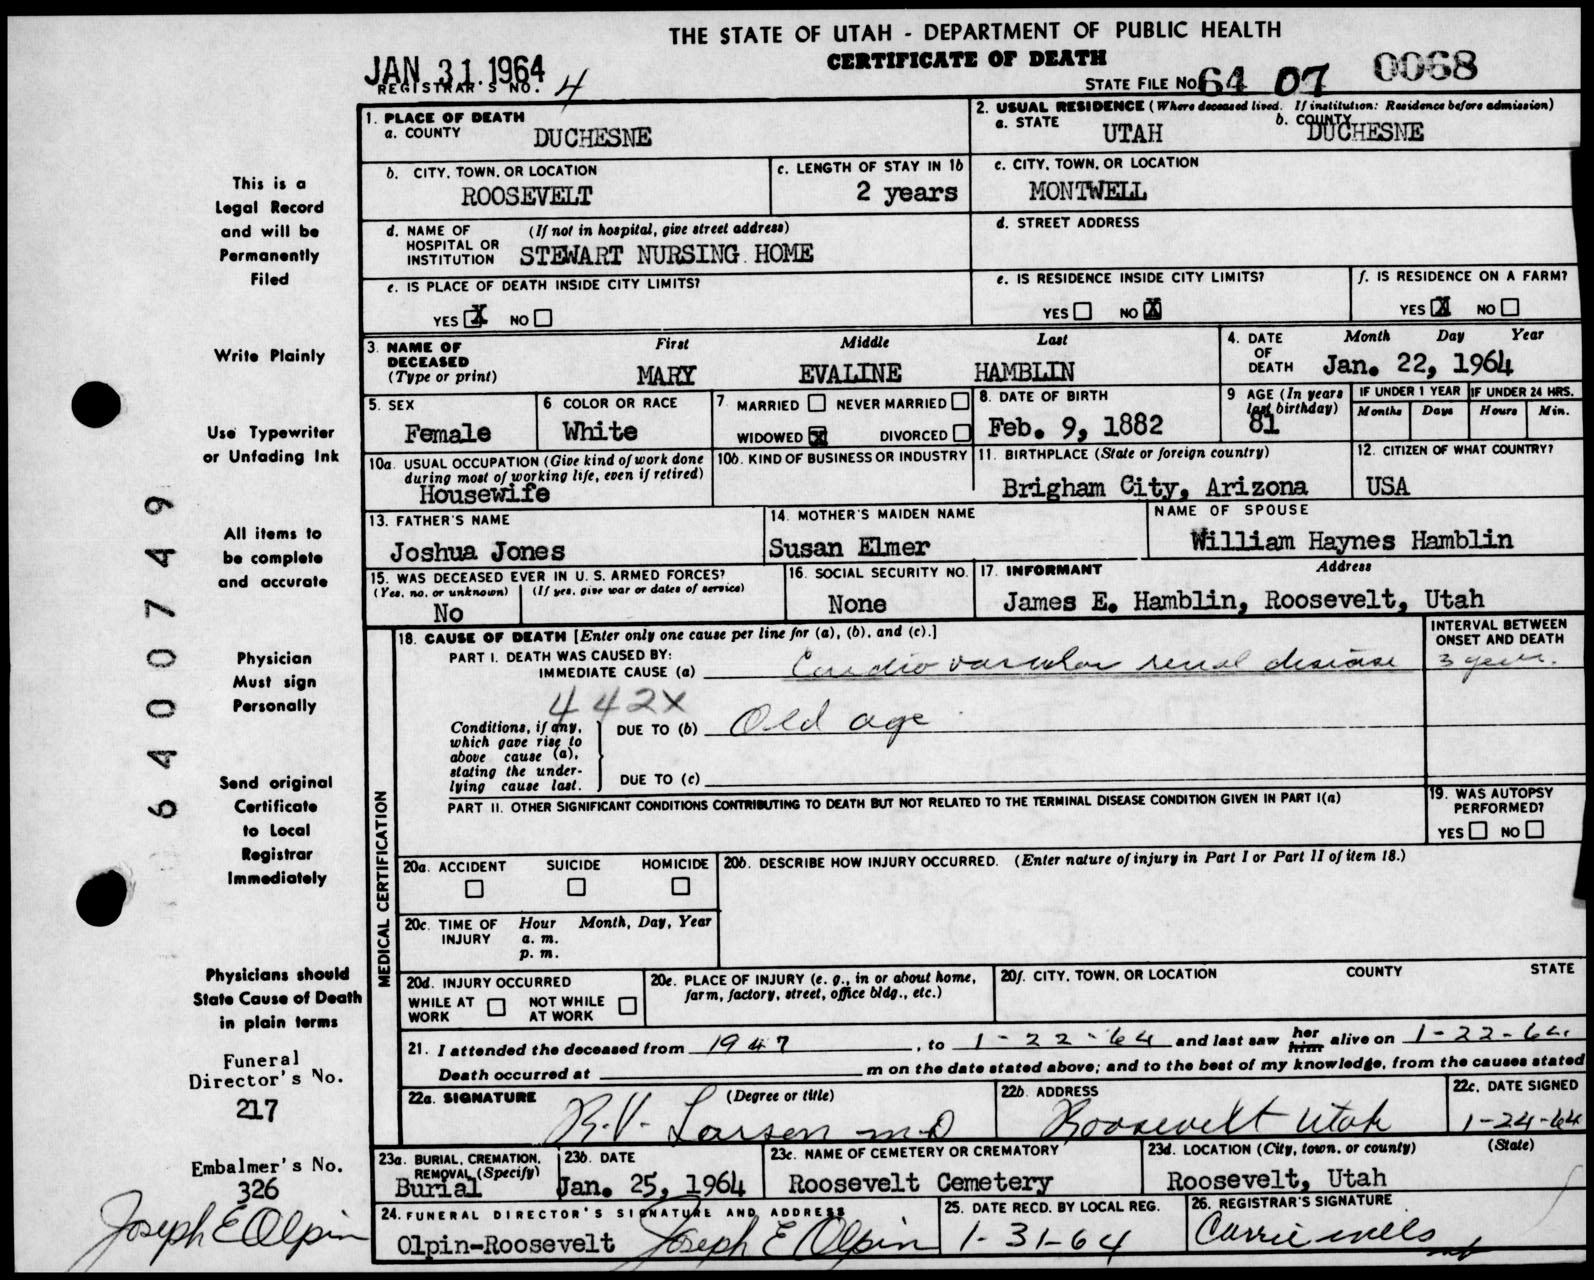 THE STATE OF UTAH - DEPARTMENT OF PUBLIC HEALTH
CERTIFICATE OF DEATH
JAN 31 1964
REGISTRAR'S NO. 4
STATE FILE NO. 64 07 0068
1. PLACE OF DEATH
a. COUNTY DUCHESNE
2. USUAL RESIDENCE (Where deceased lived. If institution: Residence before admission)
a. STATE UTAH b. COUNTY DUCHESNE
b. CITY, TOWN, OR LOCATION ROOSEVELT
c. LENGTH OF STAY IN 1b 2 years
c. CITY, TOWN, OR LOCATION MONTWELL
d. NAME OF HOSPITAL OR INSTITUTION (If not in hospital, give street address) STEWART NURSING HOME
d. STREET ADDRESS
e. IS PLACE OF DEATH INSIDE CITY LIMITS?
YES X NO
e. IS RESIDENCE INSIDE CITY LIMITS?
YES NO X
f. IS RESIDENCE ON A FARM?
YES X NO
3. NAME OF DECEASED (Type or print)
First Middle Last
MARY EVALINE HAMBLIN
4. DATE OF DEATH Month Day Year
Jan. 22, 1964
5. SEX Female
6 COLOR OR RACE White
7 MARRIED NEVER MARRIED
WIDOWED X DIVORCED
8. DATE OF BIRTH Feb. 9, 1882
9 AGE (In years last birthday) 81
IF UNDER 1 YEAR Months Days
IF UNDER 24 HRS. Hours Min.
10a. USUAL OCCUPATION (Give kind of work done during most of working life, even if retired)
Housewife
10b. KIND OF BUSINESS OR INDUSTRY
11. BIRTHPLACE (State or foreign country)
Brigham City, Arizona
12. CITIZEN OF WHAT COUNTRY?
USA
13. FATHER'S NAME
Joshua Jones
14. MOTHER'S MAIDEN NAME
Susan Elmer
NAME OF SPOUSE
William Haynes Hamblin
15. WAS DECEASED EVER IN U. S. ARMED FORCES?
(Yes, no, or unknown) (If yes, give war or dates of service)
No
16. SOCIAL SECURITY NO.
None
17. INFORMANT Address
James E. Hamblin, Roosevelt, Utah
MEDICAL CERTIFICATION
18. CAUSE OF DEATH [Enter only one cause per line for (a), (b), and (c).]
INTERVAL BETWEEN ONSET AND DEATH
PART I. DEATH WAS CAUSED BY:
IMMEDIATE CAUSE (a) Cardio vascular renal disease 3 years.
442X
Conditions, if any, which gave rise to above cause (a), stating the underlying cause last.
DUE TO (b) Old age
DUE TO (c)
PART II. OTHER SIGNIFICANT CONDITIONS CONTRIBUTING TO DEATH BUT NOT RELATED TO THE TERMINAL DISEASE CONDITION GIVEN IN PART I(a)
19. WAS AUTOPSY PERFORMED?
YES NO
20a. ACCIDENT SUICIDE HOMICIDE
20b. DESCRIBE HOW INJURY OCCURRED. (Enter nature of injury in Part I or Part II of item 18.)
20c. TIME OF INJURY Hour Month, Day, Year
a. m.
p. m.
20d. INJURY OCCURRED
WHILE AT WORK NOT WHILE AT WORK
20e. PLACE OF INJURY (e. g., in or about home, farm, factory, street, office bldg., etc.)
20f. CITY, TOWN, OR LOCATION COUNTY STATE
21. I attended the deceased from 1947, to 1-22-64 and last saw her him alive on 1-22-64.
Death occurred at m on the date stated above; and to the best of my knowledge, from the causes stated
22a. SIGNATURE (Degree or title)
R.V. Larsen m.D
22b. ADDRESS
Roosevelt Utah
22c. DATE SIGNED
1-24-64
23a. BURIAL, CREMATION, REMOVAL (Specify)
Burial
23b. DATE
Jan. 25, 1964
23c. NAME OF CEMETERY OR CREMATORY
Roosevelt Cemetery
23d. LOCATION (City, town, or county) (State)
Roosevelt, Utah
24. FUNERAL DIRECTOR'S SIGNATURE AND ADDRESS
Olpin-Roosevelt Joseph E Olpin
25. DATE RECD. BY LOCAL REG.
1-31-64
26. REGISTRAR'S SIGNATURE
Carrie Wells
This is a
Legal Record
and will be
Permanently
Filed
Write Plainly
Use Typewriter
or Unfading Ink
All items to
be complete
and accurate
Physician
Must sign
Personally
Send original
Certificate
to Local
Registrar
Immediately
Physicians should
State Cause of Death
in plain terms
Funeral
Director's No.
217
Embalmer's No.
326
Joseph E Olpin
6400749